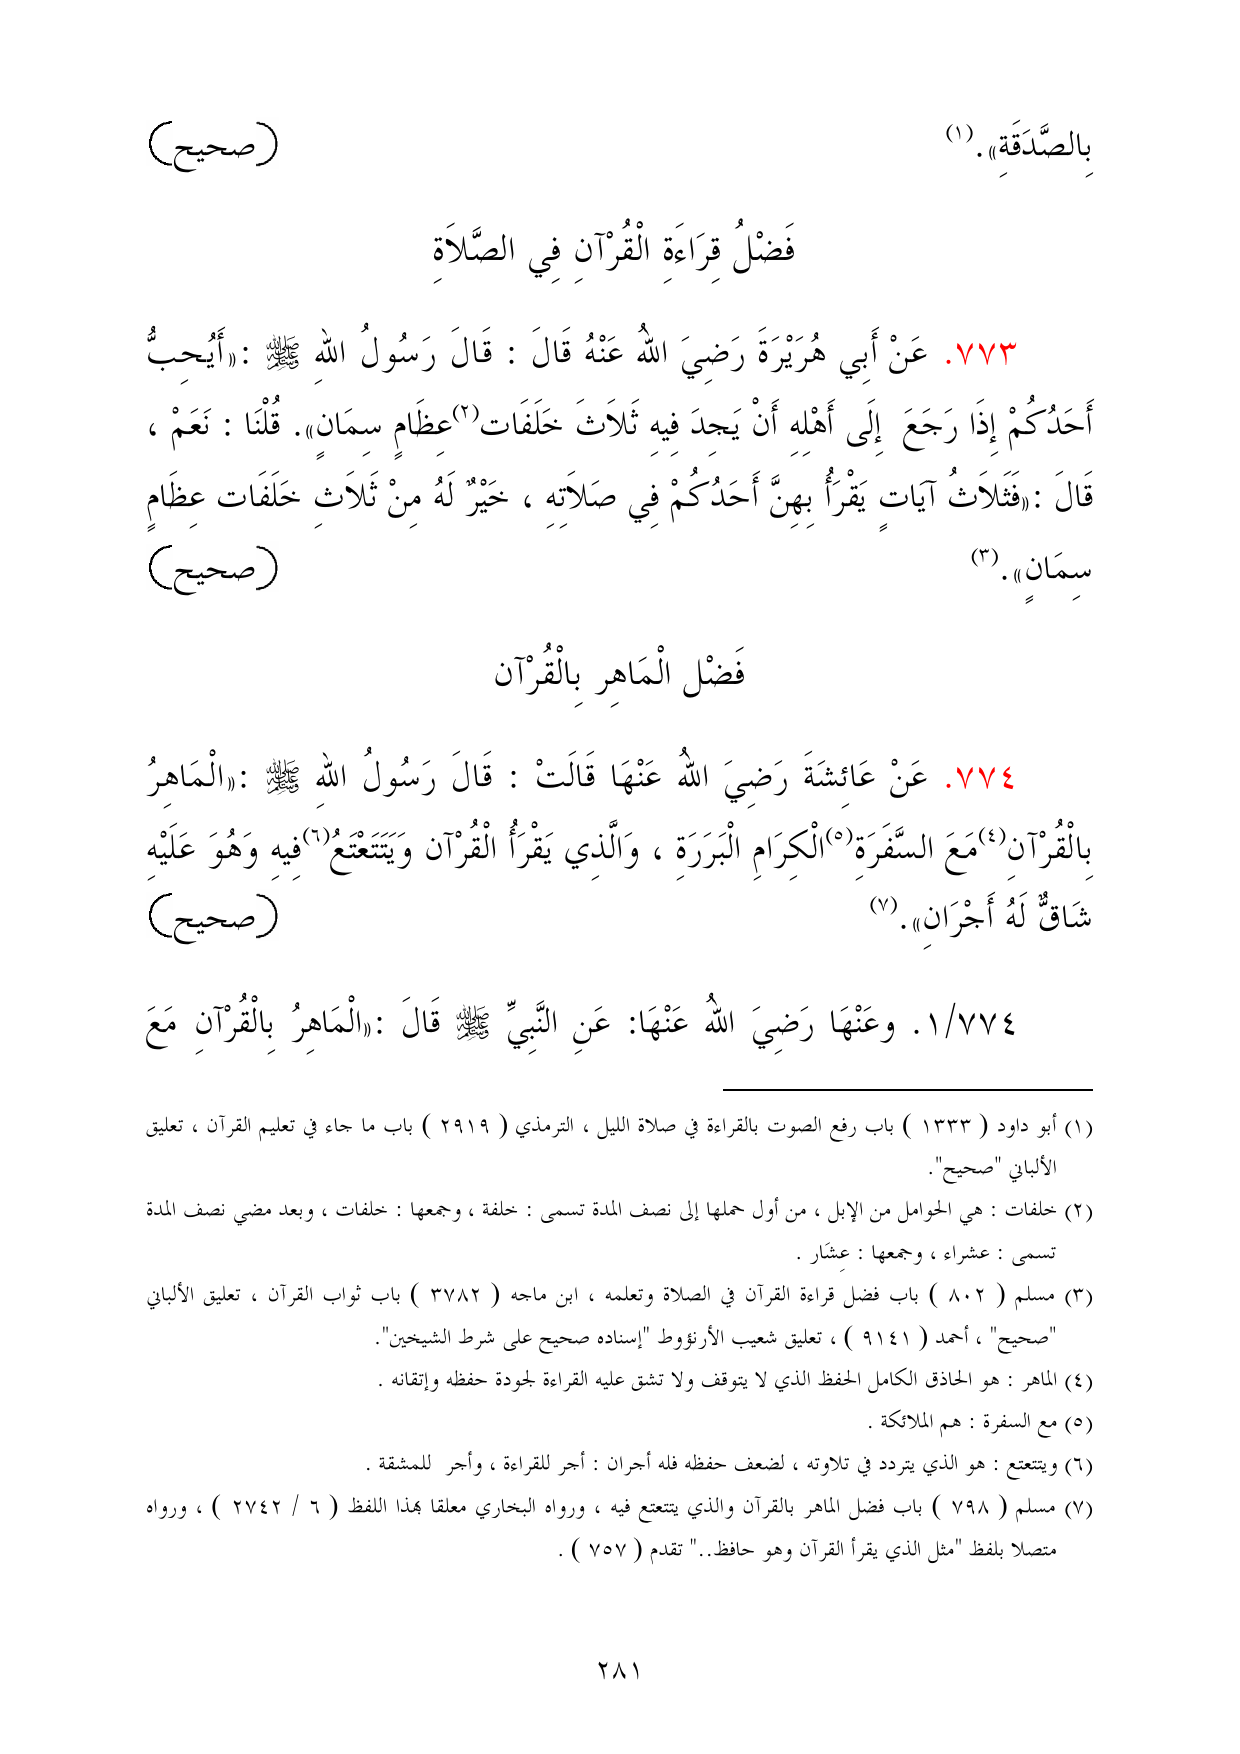 بِالصَّدَقَةِ». (١) (صحيح)
فَضْلُ قِرَاءَةِ الْقُرْآنِ فِي الصَّلاَةِ
٧٧٣. عَنْ أَبِي هُرَيْرَةَ رَضِيَ اللهُ عَنْهُ قَالَ : قَالَ رَسُولُ اللهِ ﷺ :«أَيُحِبُّ
أَحَدُكُمْ إِذَا رَجَعَ إِلَى أَهْلِهِ أَنْ يَجِدَ فِيهِ ثَلاَثَ خَلَفَات(٢)عِظَامٍ سِمَانٍ». قُلْنَا : نَعَمْ ،
قَالَ :«فَثَلاَثُ آيَاتٍ يَقْرَأُ بِهِنَّ أَحَدُكُمْ فِي صَلاَتِهِ ، خَيْرٌ لَهُ مِنْ ثَلاَثِ خَلَفَات عِظَامٍ
سِمَانٍ». (٣) (صحيح)
فَضْل الْمَاهِر بِالْقُرْآن
٧٧٤. عَنْ عَائِشَةَ رَضِيَ اللهُ عَنْهَا قَالَتْ : قَالَ رَسُولُ اللهِ ﷺ :«الْمَاهِرُ
بِالْقُرْآنِ(٤)مَعَ السَّفَرَةِ(٥)الْكِرَامِ الْبَرَرَةِ ، وَالَّذِي يَقْرَأُ الْقُرْآن وَيَتَتَعْتَعُ(٦)فِيهِ وَهُوَ عَلَيْهِ
شَاقٌّ لَهُ أَجْرَانِ». (٧) (صحيح)
١/٧٧٤. وعَنْهَا رَضِيَ اللهُ عَنْهَا: عَنِ النَّبِيِّ ﷺ قَالَ :«الْمَاهِرُ بِالْقُرْآنِ مَعَ
(١) أبو داود ( ١٣٣٣ ) باب رفع الصوت بالقراءة في صلاة الليل ، الترمذي ( ٢٩١٩ ) باب ما جاء في تعليم القرآن ، تعليق
الألباني "صحيح".
(٢) خلفات : هي الحوامل من الإبل ، من أول حملها إلى نصف المدة تسمى : خلفة ، وجمعها : خلفات ، وبعد مضي نصف المدة
تسمى : عشراء ، وجمعها : عِشَار .
(٣) مسلم ( ٨٠٢ ) باب فضل قراءة القرآن في الصلاة وتعلمه ، ابن ماجه ( ٣٧٨٢ ) باب ثواب القرآن ، تعليق الألباني
"صحيح" ، أحمد ( ٩١٤١ ) ، تعليق شعيب الأرنؤوط "إسناده صحيح على شرط الشيخين".
(٤) الماهر : هو الحاذق الكامل الحفظ الذي لا يتوقف ولا تشق عليه القراءة لجودة حفظه وإتقانه .
(٥) مع السفرة : هم الملائكة .
(٦) ويتتعتع : هو الذي يتردد في تلاوته ، لضعف حفظه فله أجران : أجر للقراءة ، وأجر للمشقة .
(٧) مسلم ( ٧٩٨ ) باب فضل الماهر بالقرآن والذي يتتعتع فيه ، ورواه البخاري معلقا بهذا اللفظ ( ٦ / ٢٧٤٢ ) ، ورواه
متصلا بلفظ "مثل الذي يقرأ القرآن وهو حافظ.." تقدم ( ٧٥٧ ) .
٢٨١